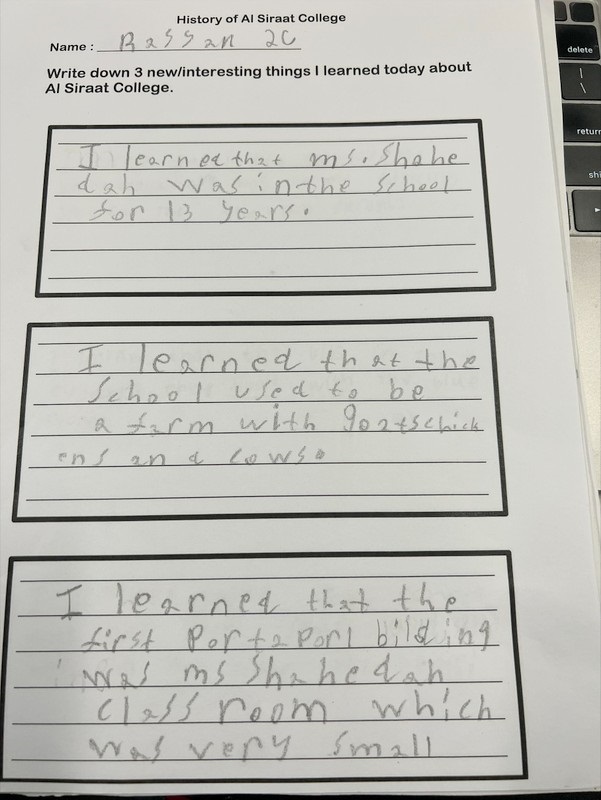 History of Al Siraat College
Name : Bassan 2C
Write down 3 new/interesting things I learned today about
Al Siraat College.
I learned that ms. Shahe
dah was in the school
for 13 years.
I learned that the
school used to be
a farm with goats chick
ens and cows.
I learned that the
first Portaporl bilding
was ms Shahedah
class room which
was very small
delete
return
shi